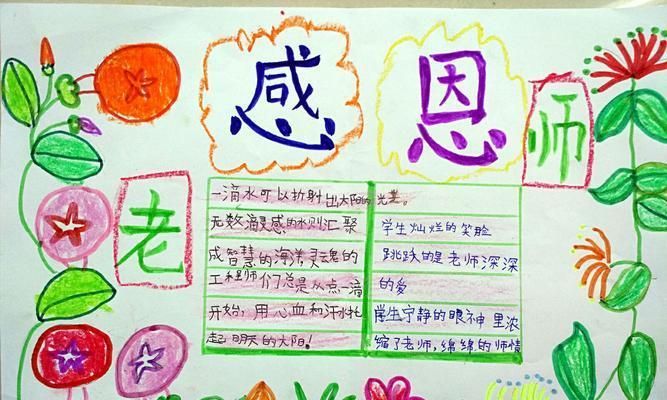 感恩
老师
一滴水可以折射出太阳的光
无数滴灵感的水则汇聚
成智慧的海洋,灵魂的
工程师们总是从点一滴
开始,用心血和汗水托
起明天的太阳!
学生灿烂的笑脸
跳跃的是老师深深
的爱
学生宁静的眼神里浓
缩了老师,绵绵的师情